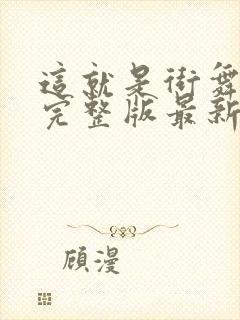 這就是街舞
完整版最新
顧漫